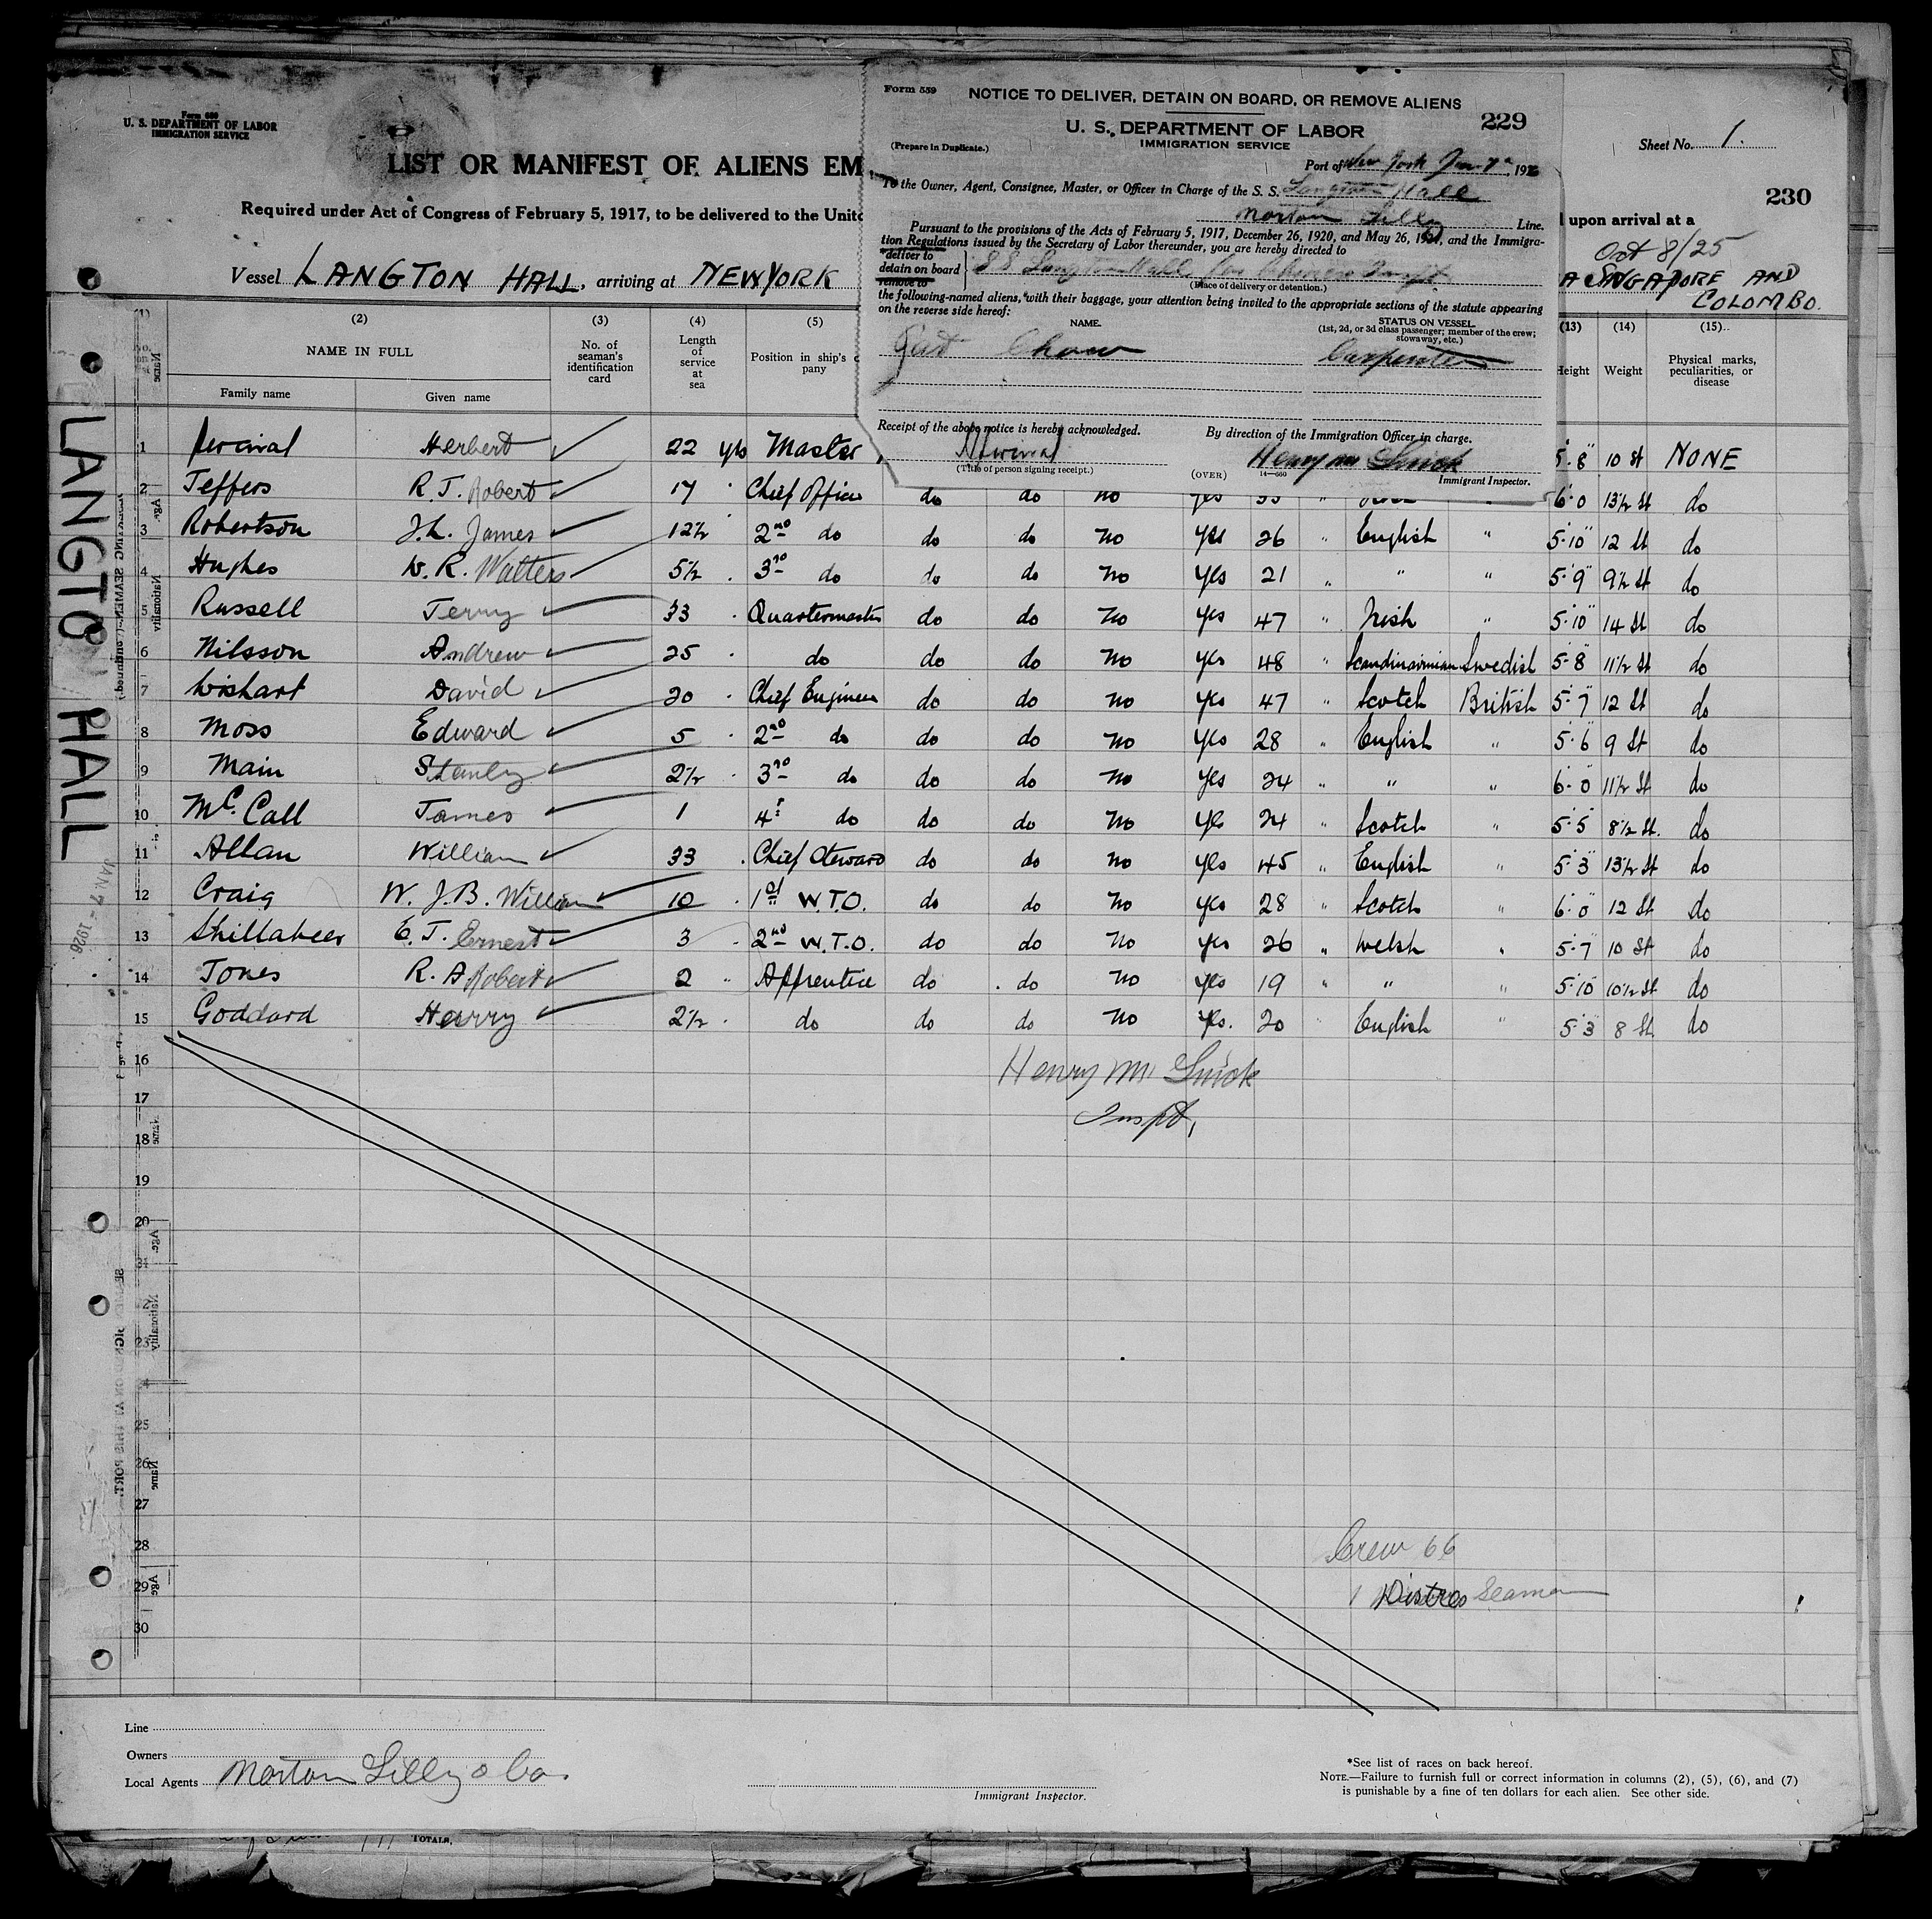 Form 689
U. S. DEPARTMENT OF LABOR
IMMIGRATION SERVICE
LIST OR MANIFEST OF ALIENS EM
Required under Act of Congress of February 5, 1917, to be delivered to the Unite
Vessel LANGTON HALL, arriving at NEWYORK
Form 559
NOTICE TO DELIVER, DETAIN ON BOARD, OR REMOVE ALIENS
229
U. S. DEPARTMENT OF LABOR
IMMIGRATION SERVICE
(Prepare in Duplicate.)
Port of New York Jan 7 1926
To the Owner, Agent, Consignee, Master, or Officer in Charge of the S. S. Langton Hall
Norton Lilly Line.
Pursuant to the provisions of the Acts of February 5, 1917, December 26, 1920, and May 26, 1921, and the Immigra-
tion Regulations issued by the Secretary of Labor thereunder, you are hereby directed to
*deliver to
detain on board
remove to
SS Langton Hall for Chinese Inspt.
(Place of delivery or detention.)
the following-named aliens, with their baggage, your attention being invited to the appropriate sections of the statute appearing
on the reverse side hereof:
NAME.
STATUS ON VESSEL
(1st, 2d, or 3d class passenger; member of the crew;
stowaway, etc.)
Chow Carpenter
Receipt of the above notice is hereby acknowledged.
By direction of the Immigration Officer in charge.
(Title of person signing receipt.)
(OVER)
14—660
Immigrant Inspector.
Sheet No. 1.
230
l upon arrival at a
Oct 8/25
A SINGAPORE AND
COLOMBO.
(1) (2) (3) (4) (5) (13) (14) (15)
NAME IN FULL
Family name Given name
No. of seaman's identification card
Length of service at sea
Position in ship's
pany
Height Weight Physical marks, peculiarities, or disease
1 Percival Herbert 22 yrs Master 5·8 10 st NONE
2 Jeffers R.J. Robert 17 Chief Officer do do no yes 6·0 13½ St do
3 Robertson J.L. James 12½ 2nd do do do no yes 26 " English " 5·10 12 St do
4 Hughes W.R. Walters 5½ 3rd do do do no yes 21 " " " 5·9 9½ St do
5 Russell Terry 33 Quartermaster do do no yes 47 " Irish " 5·10 14 St do
6 Nilsson Andrew 25 do do do no yes 48 " Scandinavian Swedish 5·8 11½ St do
7 Wishart David 20 Chief Engineer do do no yes 47 " Scotch British 5·7 12 St do
8 Moss Edward 5 2nd do do do no yes 28 " English " 5·6 9 St do
9 Main Stanley 2½ 3rd do do do no yes 24 " " " 6·0 11½ St do
10 McCall James 1 4th do do do no yes 24 " Scotch " 5·5 8½ St. do
11 Allan William 33 Chief Steward do do no yes 45 " English " 5·3 13½ St do
12 Craig W.J.B. William 10 1st W.T.O. do do no yes 28 " Scotch " 6·0 12 St do
13 Shillabeer E.J. Ernest 3 2nd W.T.O. do do no yes 26 " Welsh " 5·7 10 St do
14 Jones R.A Robert 2 Apprentice do do no yes 19 " " " 5·10 10½ St do
15 Goddard Harry 2½ do do do no yes. 20 " English " 5·3 8 St do
16
17
18
19
20
25
26
27
28
29
30
Henry M
Inspt,
Crew 66
1 Distres Seaman
LANGTON HALL
JAN 7 - 1926
Line
Owners
Local Agents Norton Lilly & Co.
Immigrant Inspector.
*See list of races on back hereof.
NOTE.—Failure to furnish full or correct information in columns (2), (5), (6), and (7)
is punishable by a fine of ten dollars for each alien. See other side.
TOTALS,